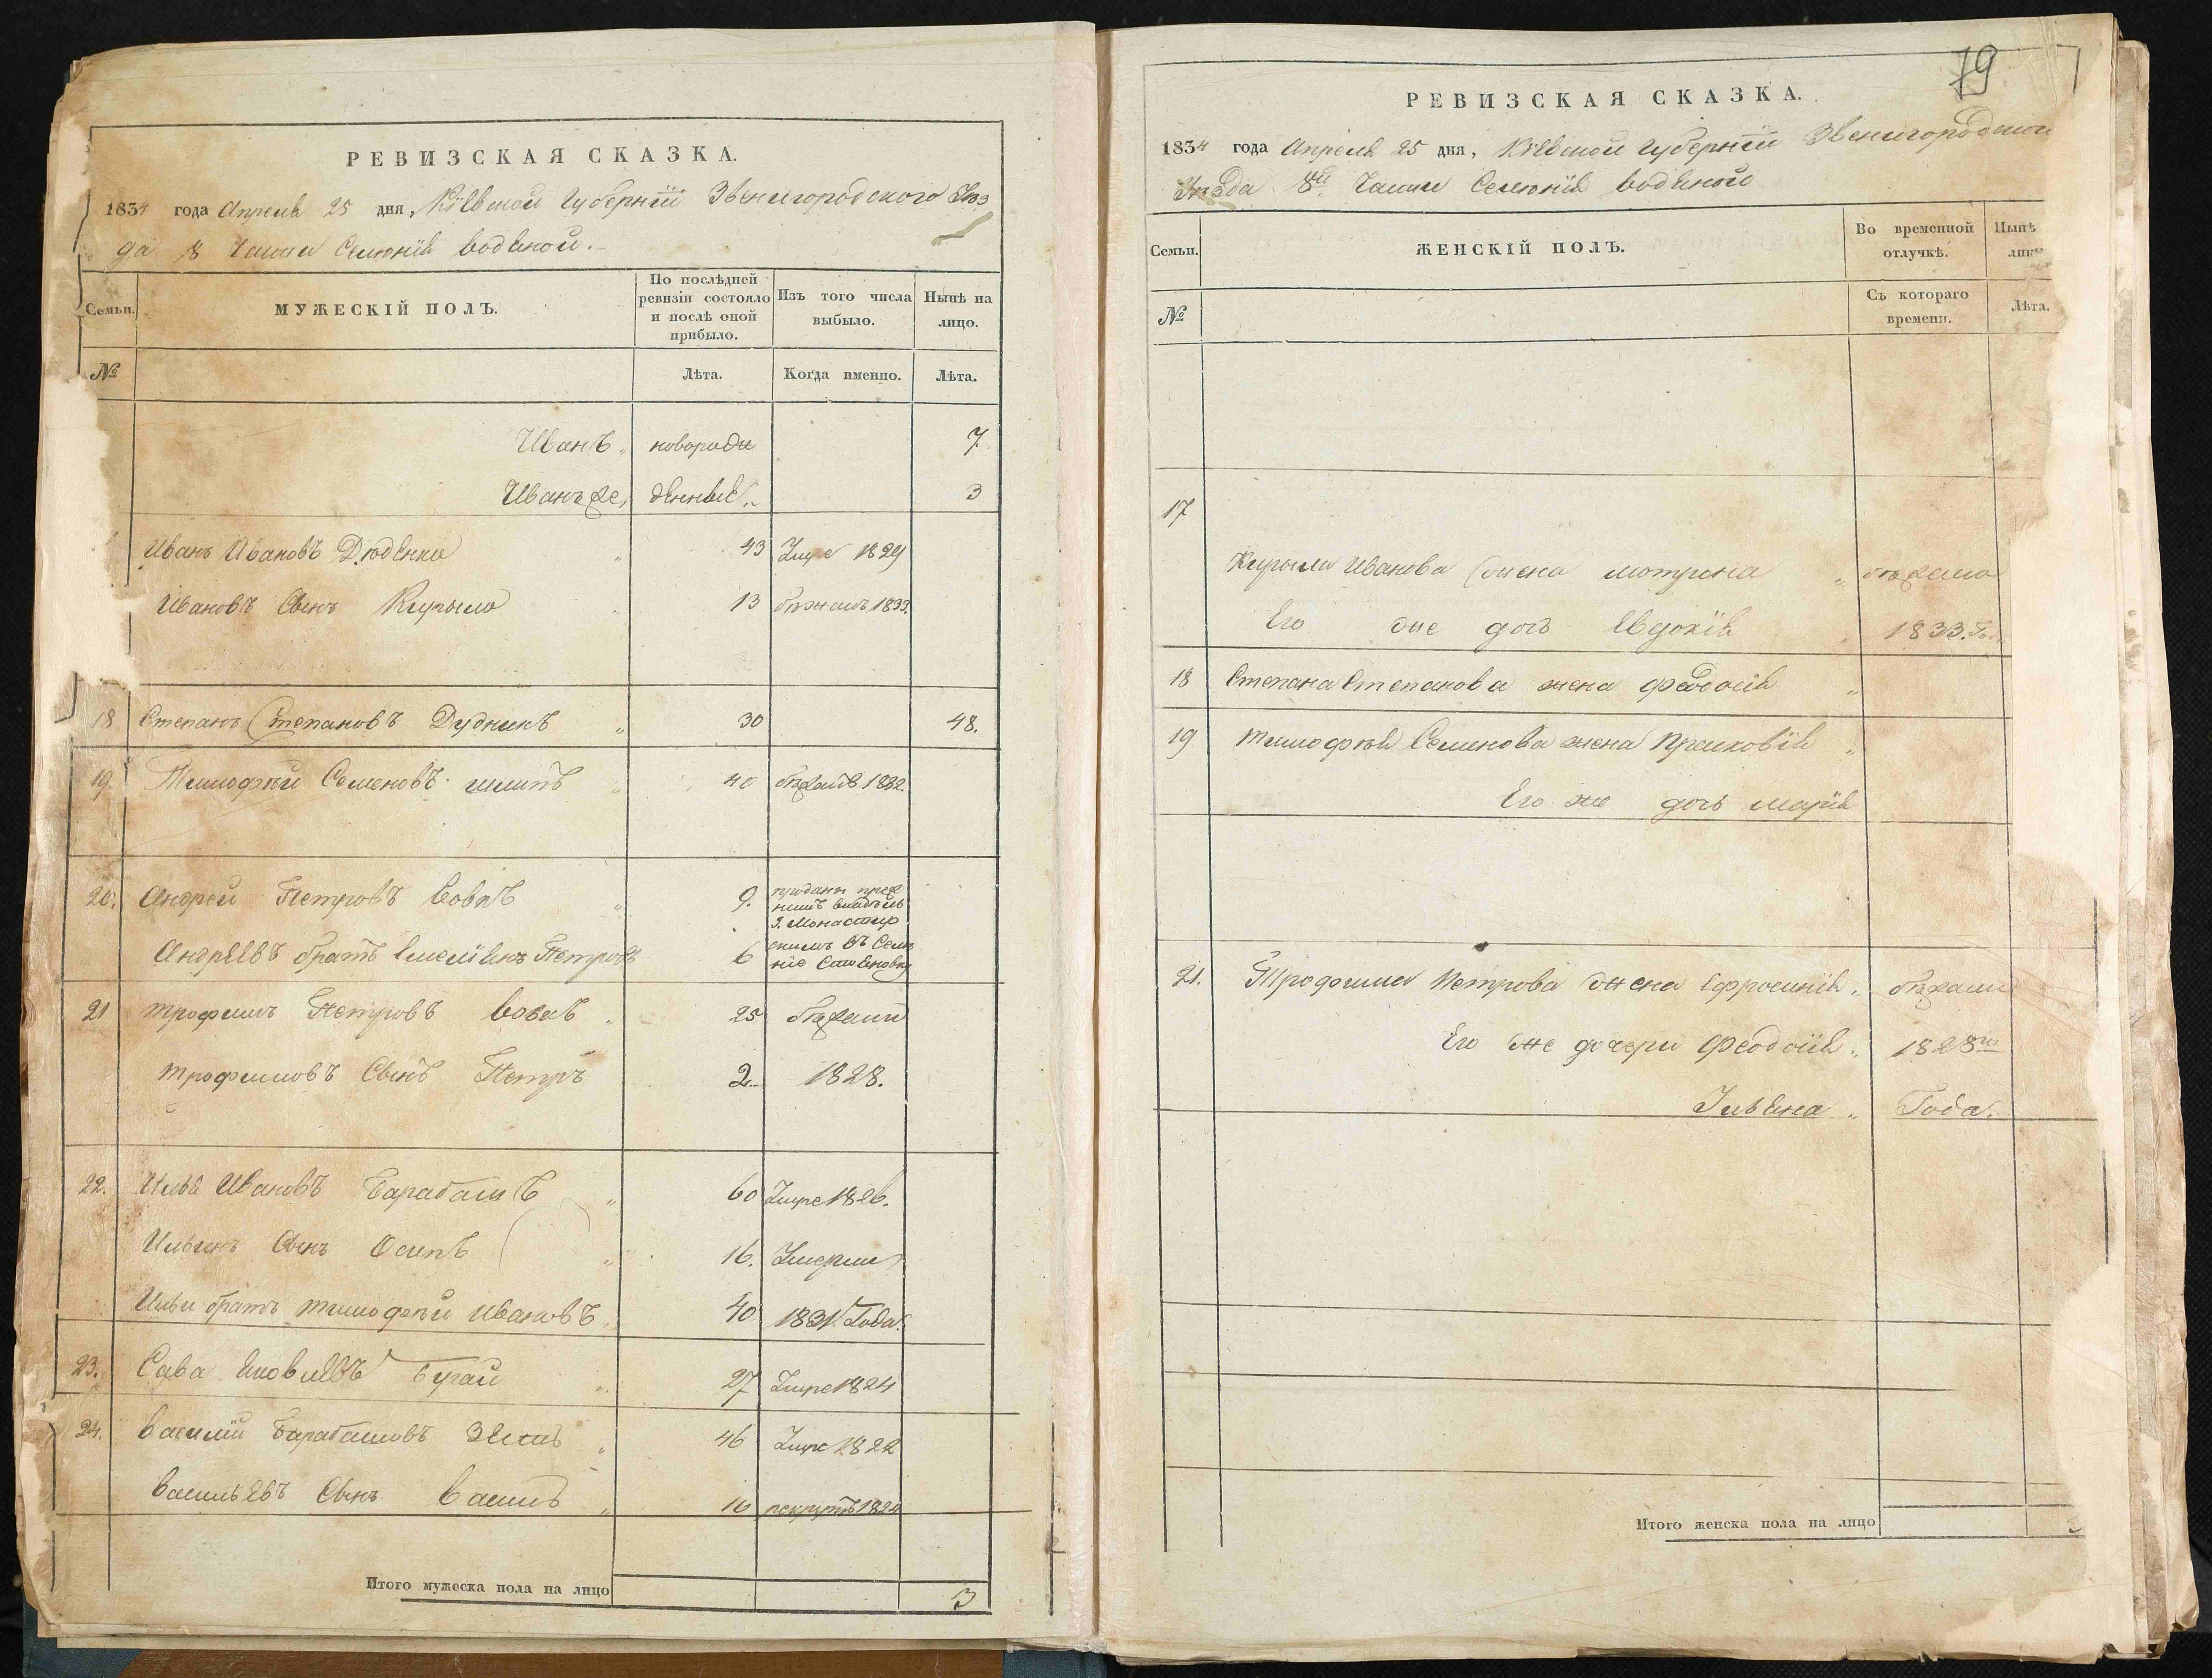 РЕВИЗСКАЯ СКАЗКА.
1834 года Апреля 25 дня, Кіевской Губерніи Звенигородского Уѣз
да 8 Части Селенія Водяной.
Семьи. МУЖЕСКІЙ ПОЛЪ. По послѣдней ревизіи состояло и послѣ оной прибыло. Изъ того числа выбыло. Нынѣ на лицо.
№ Лѣта. Когда именно. Лѣта.
Иванъ „ новорож 7
Иванъ же, денные „ 3
Иванъ Ивановъ Дюденко „ 43 Умре 1829
Ивановъ Сынъ Кирыло „ 13 бѣжалъ 1833.
18 Степанъ Степановъ Дудникъ „ 30 48.
19. Тимофѣй Семеновъ „ 40 бѣжалъ 1832.
20. Андрей Петровъ Вовкъ „ 9. проданы преж
нимъ владѣль
Монастыр
скимъ въ Селе
ніе
Андреевъ братъ Емельянъ Петровъ 6
21 Трофимъ Петровъ Вовкъ „ 25 бѣжали
Трофимовъ Сынъ Петръ 2 1828.
22. Илья Ивановъ Барабашъ „ 60 Умре 1826.
Ильинъ Сынъ Осипъ „ 16. Умерли
Ильи братъ Тимофѣй Ивановъ „ 40 1831 Года.
23. Сава Яковлевъ Бугай „ 27 Умре 1824
24. Василій Барабашовъ Зять „ 46 Умре 1822
Васильевъ Сынъ Василь „ 16 рекрутъ 1824
Итого мужеска пола на лицо 3
79
РЕВИЗСКАЯ СКАЗКА.
1834 года Апреля 25 дня, Кіевской Губерніи Звенигородского
Уѣзда 8й Части Селенія Водяной
Семьи. ЖЕНСКІЙ ПОЛЪ. Во временной отлучкѣ. Нынѣ
№ Съ котораго времени. Лѣта.
17
Кирыла Иванова жена Мотрона „ бѣжало
Его же дочь Евдокія „ 1833. Года
18 Степана Степанова жена Феодосія „
19 Тимофѣя Семенова жена Прасковія „
Его же дочь Марія
21. Трофима Петрова жена Ефросинія „ бѣжали
Его же дочери Феодосія „ 1828го
Ульяна „ Года.
Итого женска пола на лицо